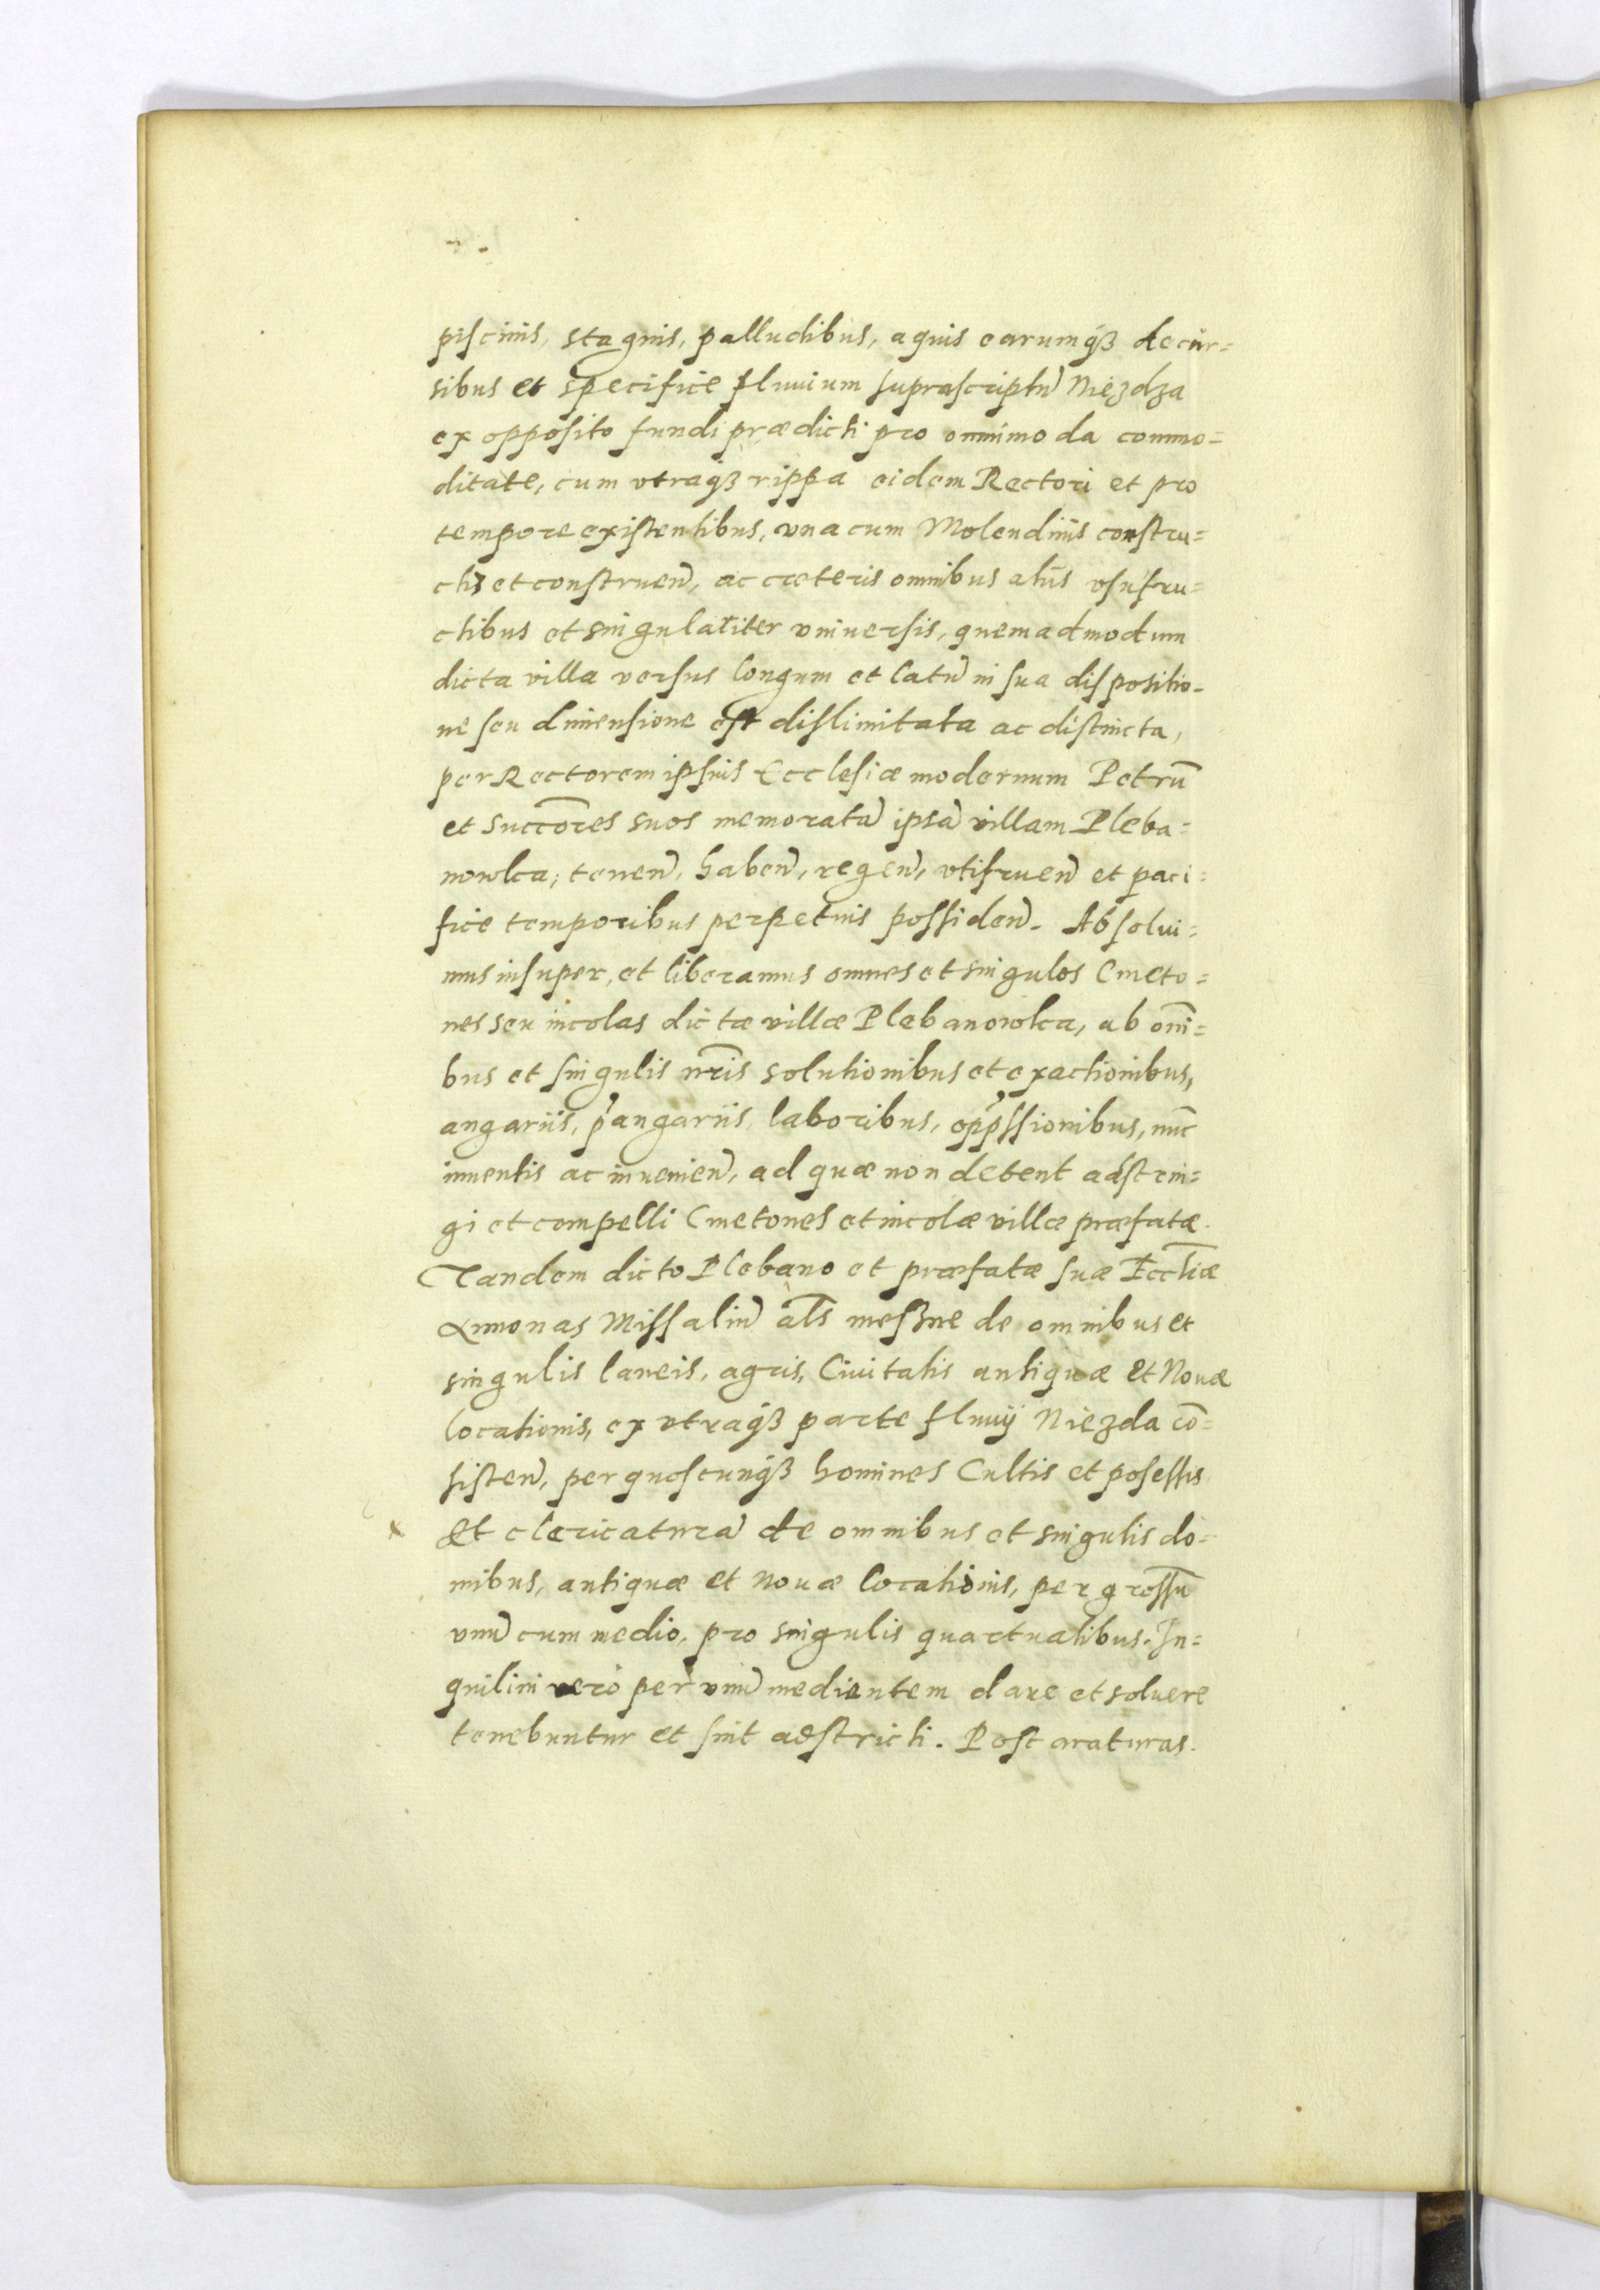 piscinis, stagnis, palludibus, aquis earumqꝫ decur=
sibus et specifice fluuium suprascriptũ Niezdza
ex opposito fundi prædicti pro omnimoda commo=
ditate, cum vtraqꝫ rippa eidem Rectori et pro
tempore existentibus, vna cum Molendinis constru=
ctis et construen̄, ac cæteris omnibus aliis vsufru=
ctibus et singulariter vniuersis, quemadmodum
dicta villa versus longum et latũ in sua dispositio-
ne seu dimensione est dislimitata ac distincta,
per Rectorem ipsius Ecclesiæ modernum Petrũ
et Succōres suos memoratã ipsã villam Pleba=
nowka; tenen̄, haben̄, regen̄, vtifruen̄ et paci=
fice temporibus perpetuis possiden̄. Absolui=
mus insuper, et liberamus omnes et singulos Cmeto=
nes seu incolas dictæ villæ Plebanowka, ab om̄i=
bus et singulis nr̄is solutionibus et exactionibus,
angariis, p̓angariis, laboribus, opp̓ssionibus, nũc
inuentis ac inuenien̄, ad quæ non debent adstrin=
gi et compelli Cmetones et incolæ villæ præfatæ.
Tandem dicto Plebano et præfatæ suæ Eccliǣ
Annonas Missaliũ al̄s meszne de omnibus et
singulis laneis, agris, Ciuitatis antiquæ et Nouæ
locationis, ex vtraqꝫ parte fluuij Niezda cō=
sisten̄, per quoscunqꝫ homines Cultis et posessis
Et clericaturã de omnibus et singulis do=
mibus, antiquæ et nouæ locationis, per grossũ
vnũ cum medio, pro singulis quartualibus. In=
quilini verò per vnũ medientem dare et soluere
tenebuntur et sint adstricti. Post araturas.